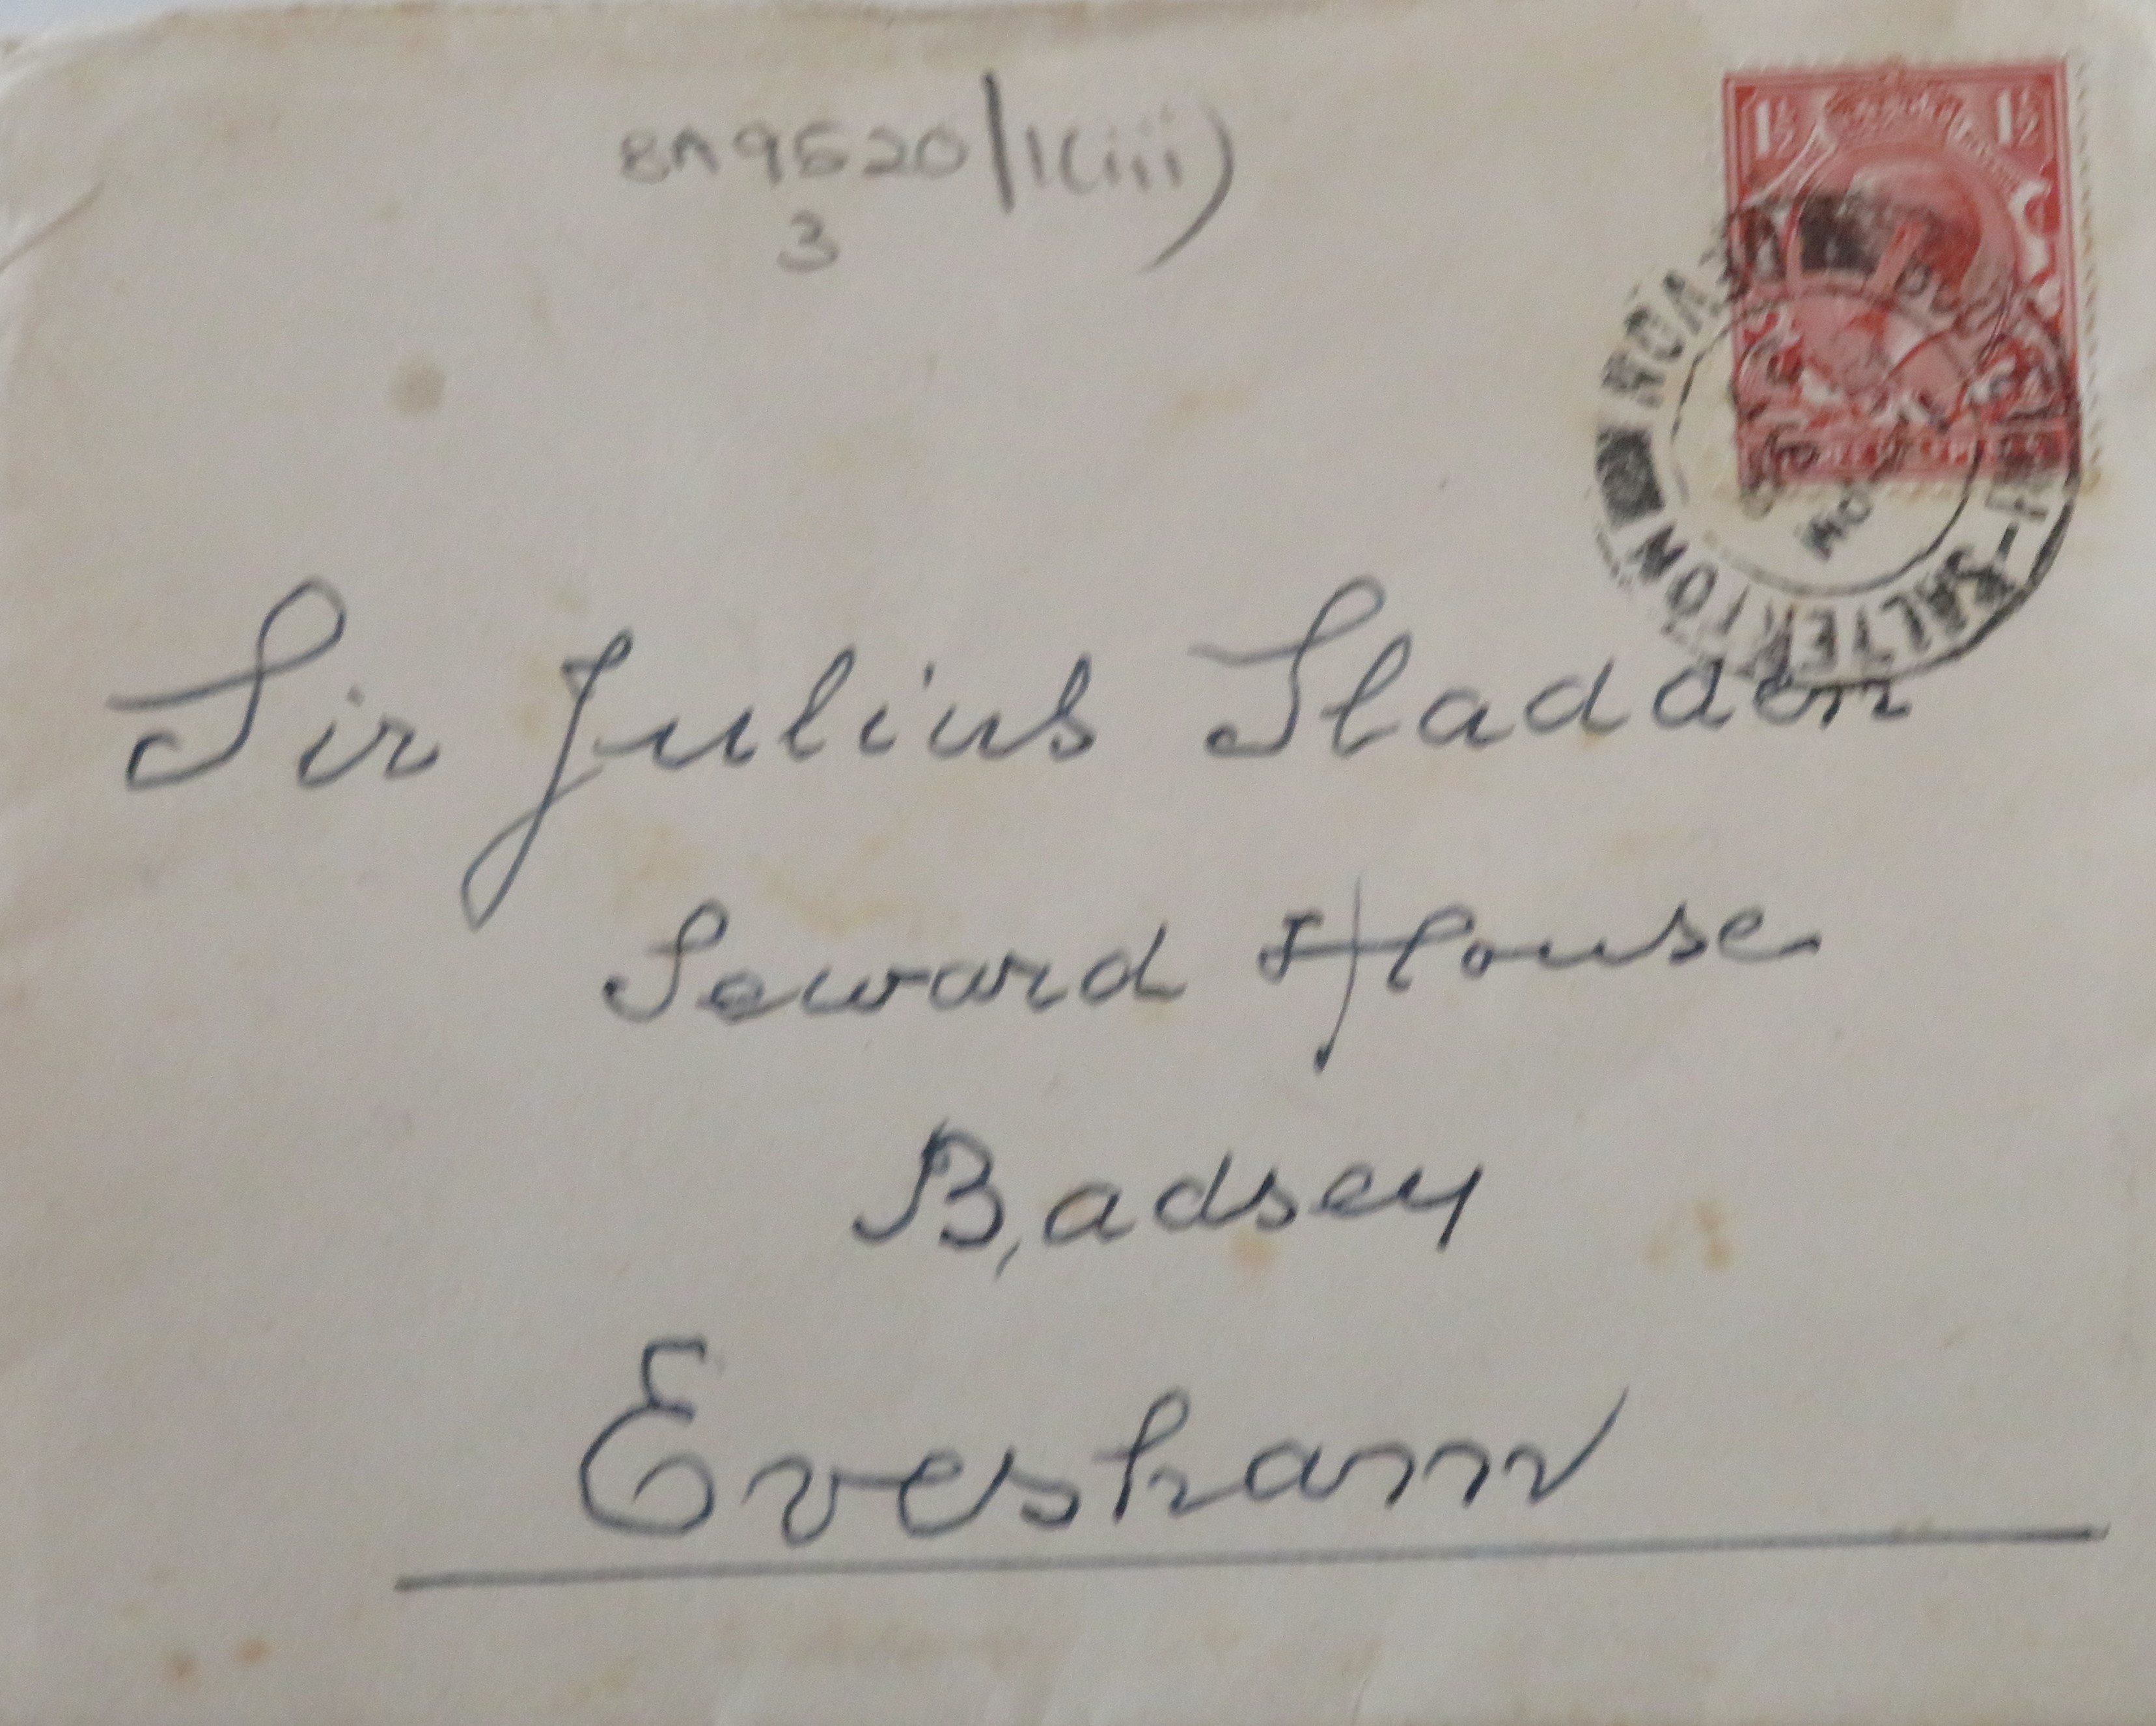 BA 9520/1(iii)
3
1½ 1½
DEVON
SALTERTON
Sir Julius Sladden
Seward House
Badsey
Evesham